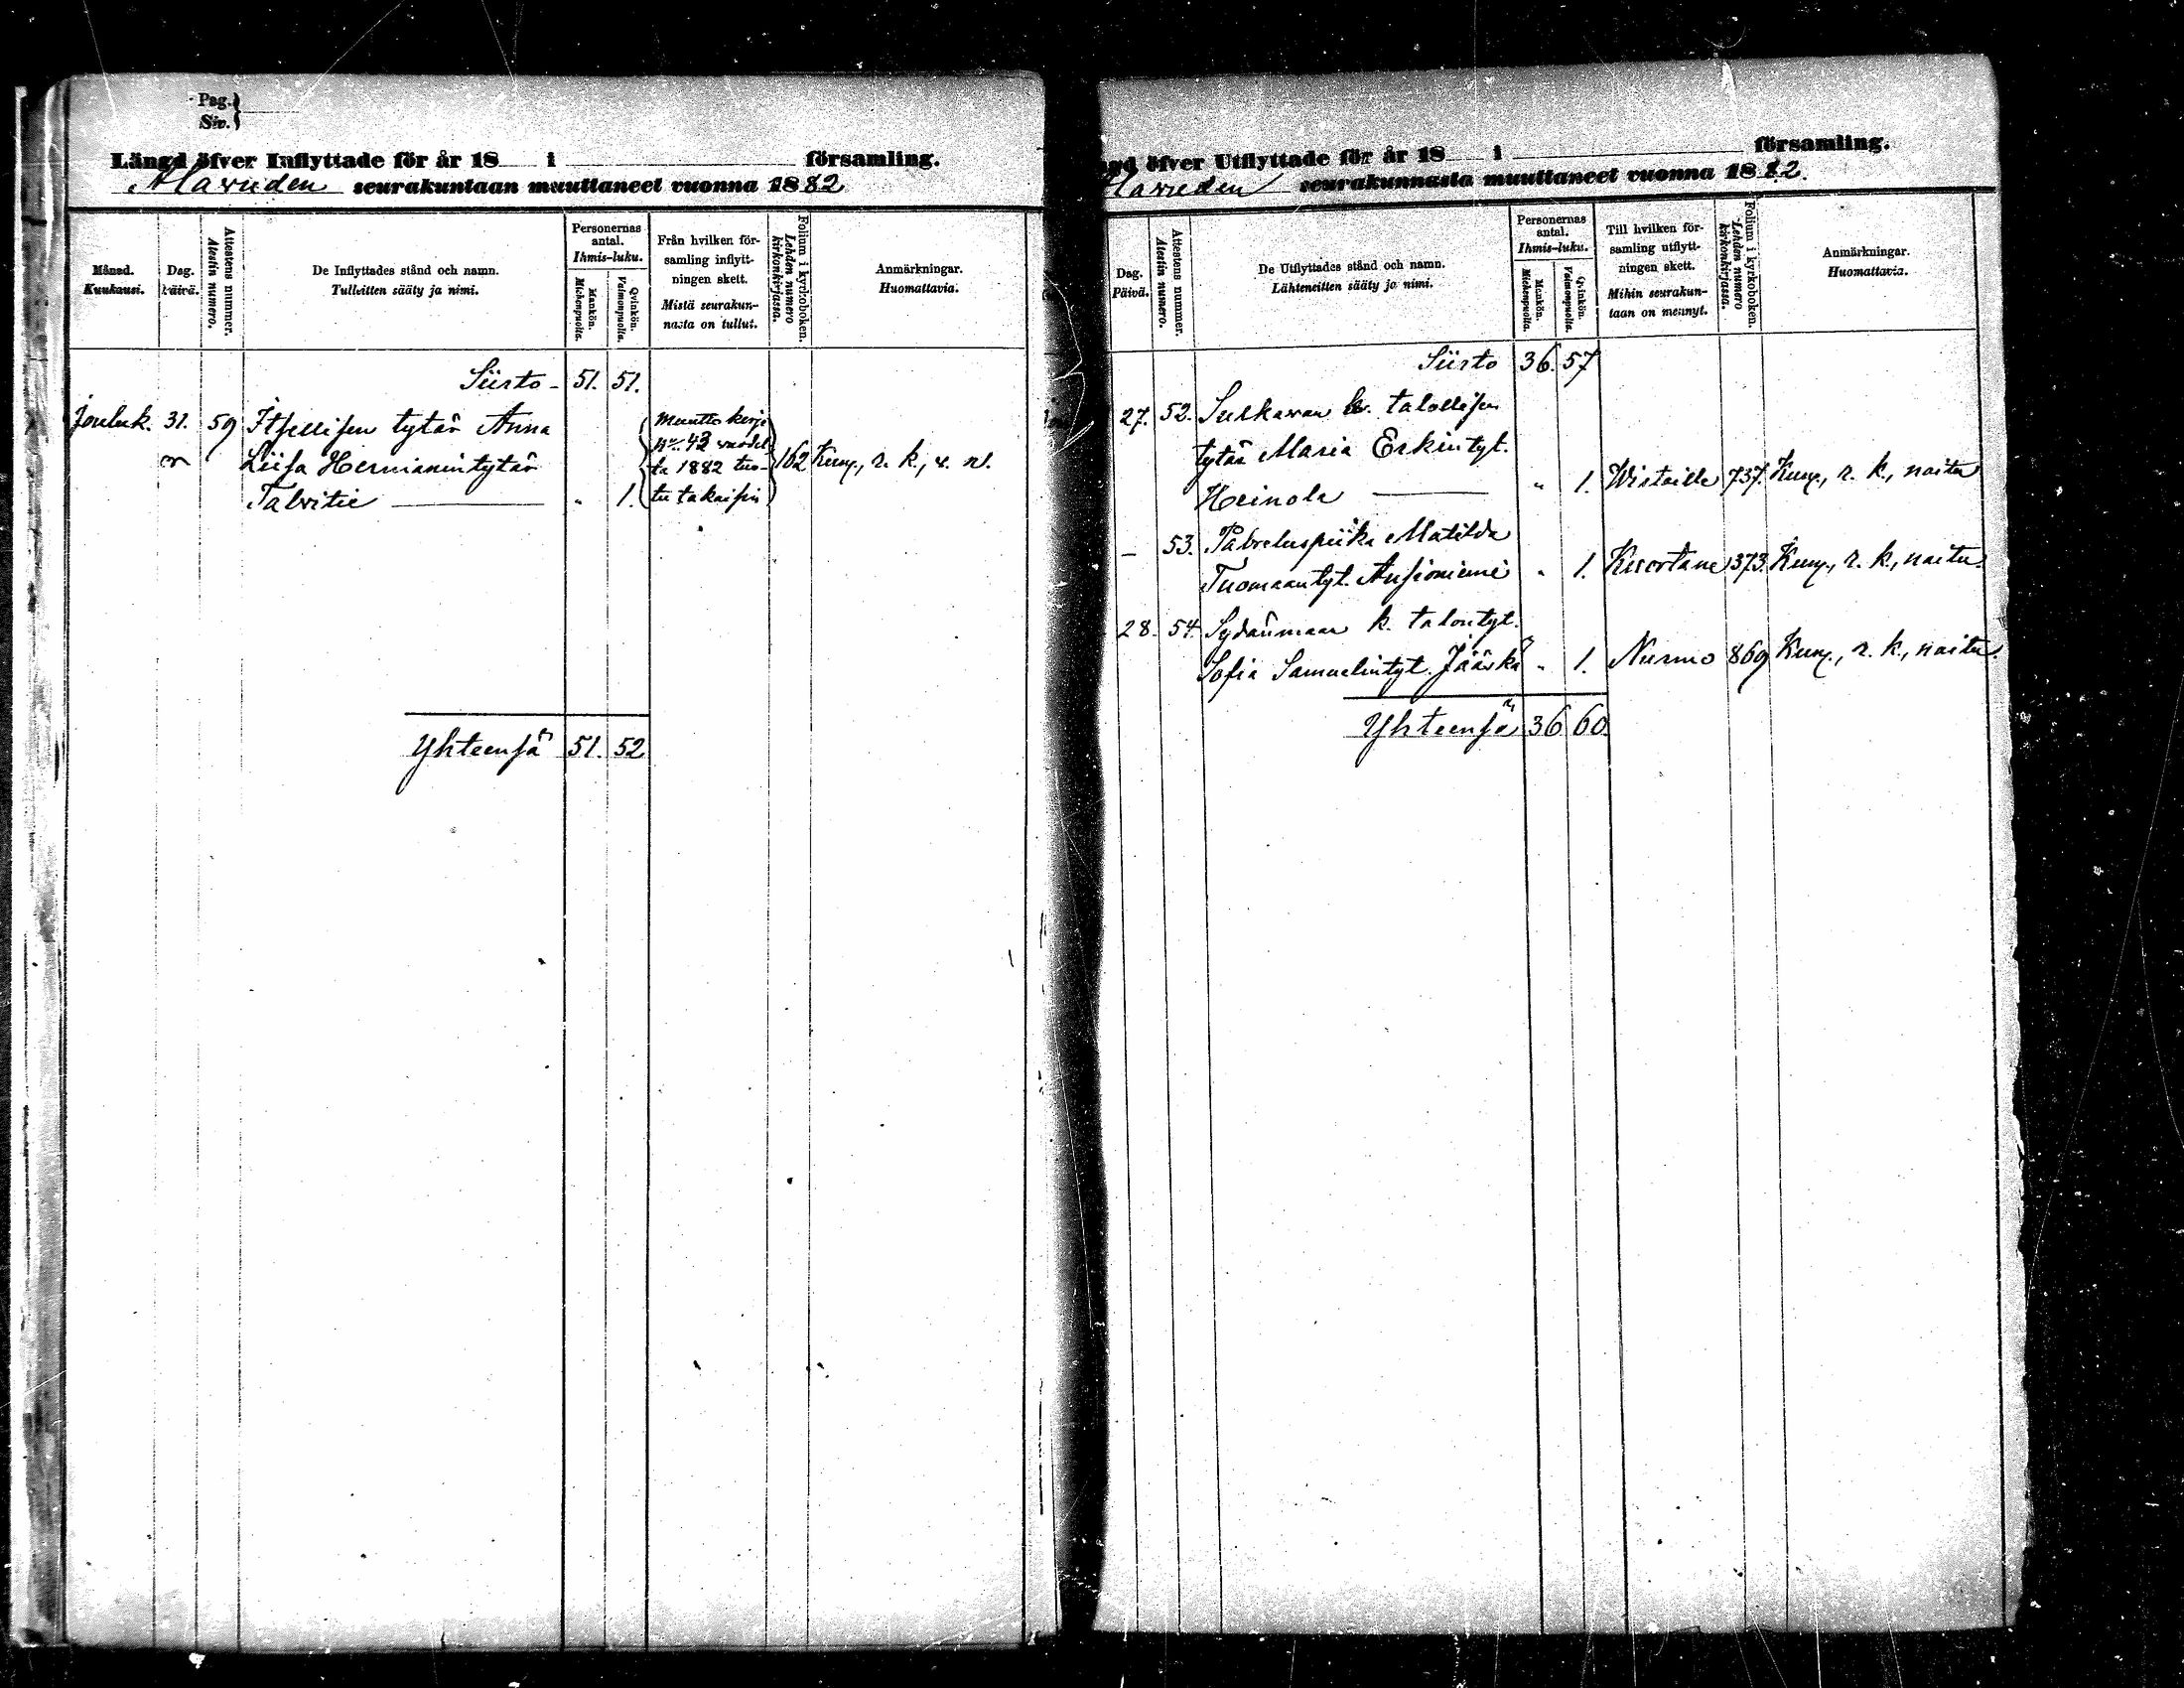 Pag.
Siv.
Längd öfver Inflyttade för år 18 i församling.
Alavuden seurakuntaan muuttaneet vuonna 1882
Månad.
Kuukausi.
Dag.
Päivä.
Attestens nummer.
Atestin numero.
De Inflyttades stånd och namn.
Tulleitten sääty ja nimi.
Personernas antal.
Ihmis-luku.
Mankön.
Miehenpuolta.
Qvinkön.
Vaimonpuolta.
Från hvilken för-
samling inflytt-
ningen skett.
Mistä seurakun-
nasta on tullut.
Folium i kyrkoboken.
Lehden numero
kirkonkirjassa.
Anmärkningar.
Huomattavia.
Siirto - 51. 51.
Jouluk. 31. 59 Itsellisen tytär Anna
Liisa Hermanintytär
Talvitie " 1.
Muutto kirja
No 43 vuodel-
ta 1882 tuo-
tu takaisin
162 Kung., r. k., v. n.
Yhteensä 51. 52
Längd öfver Utflyttade för år 18 i församling.
Alavuden seurakunnasta muuttaneet vuonna 1882.
Dag.
Päivä.
Attestens nummer.
Atestin numero.
De Utflyttades stånd och namn.
Lähteneitten sääty ja nimi.
Personernas antal.
Ihmis-luku.
Mankön.
Miehenpuolta.
Qvinkön.
Vaimonpuolta.
Till hvilken för-
samling utflytt-
ningen skett.
Mihin seurakun-
taan on mennyt.
Folium i kyrkoboken.
Lehden numero
kirkonkirjassa.
Anmärkningar.
Huomattavia.
Siirto 36. 57
27. 52. Sulkavan k. talollisen
tytär Maria Erkintyt.
Heinola " 1. Wirtoille 737. Kung., r. k., naitu
– 53. Palveluspiika Matilda
Tuomaantyt. Ansioniemi " 1. Kuortane 373. Kung., r. k., naitu.
28. 54. Sydänmaan k. talontyt.
Sofia Samuelintyt. Jääskä " 1. Nurmo 869 Kung., r. k., naitu.
Yhteensä 36 60